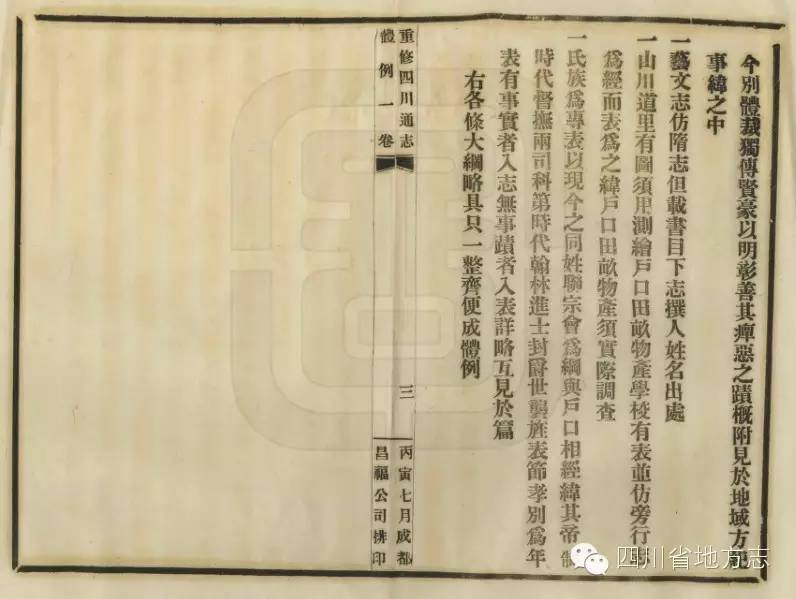 今別體裁獨傳賢豪以明彰善其癉惡之蹟槪附見於地域方
事緯之中
一藝文志仿隋志但載書目下志撰人姓名出處
一山川道里有圖須用測繪戶口田畝物產學校有表並仿旁行
爲經而表爲之緯戶口田畝物產須實際調查
一氏族爲專表以現今之同姓聯宗會爲綱與戶口相經緯其帝
時代督撫兩司科第時代翰林進士封爵世襲旌表節孝別爲年
表有事實者入志無事蹟者入表詳略互見於篇
右各條大綱略具只一整齊便成體例
重修四川通志
體例一卷
三
丙寅七月成都
昌福公司排印
四川省地方志